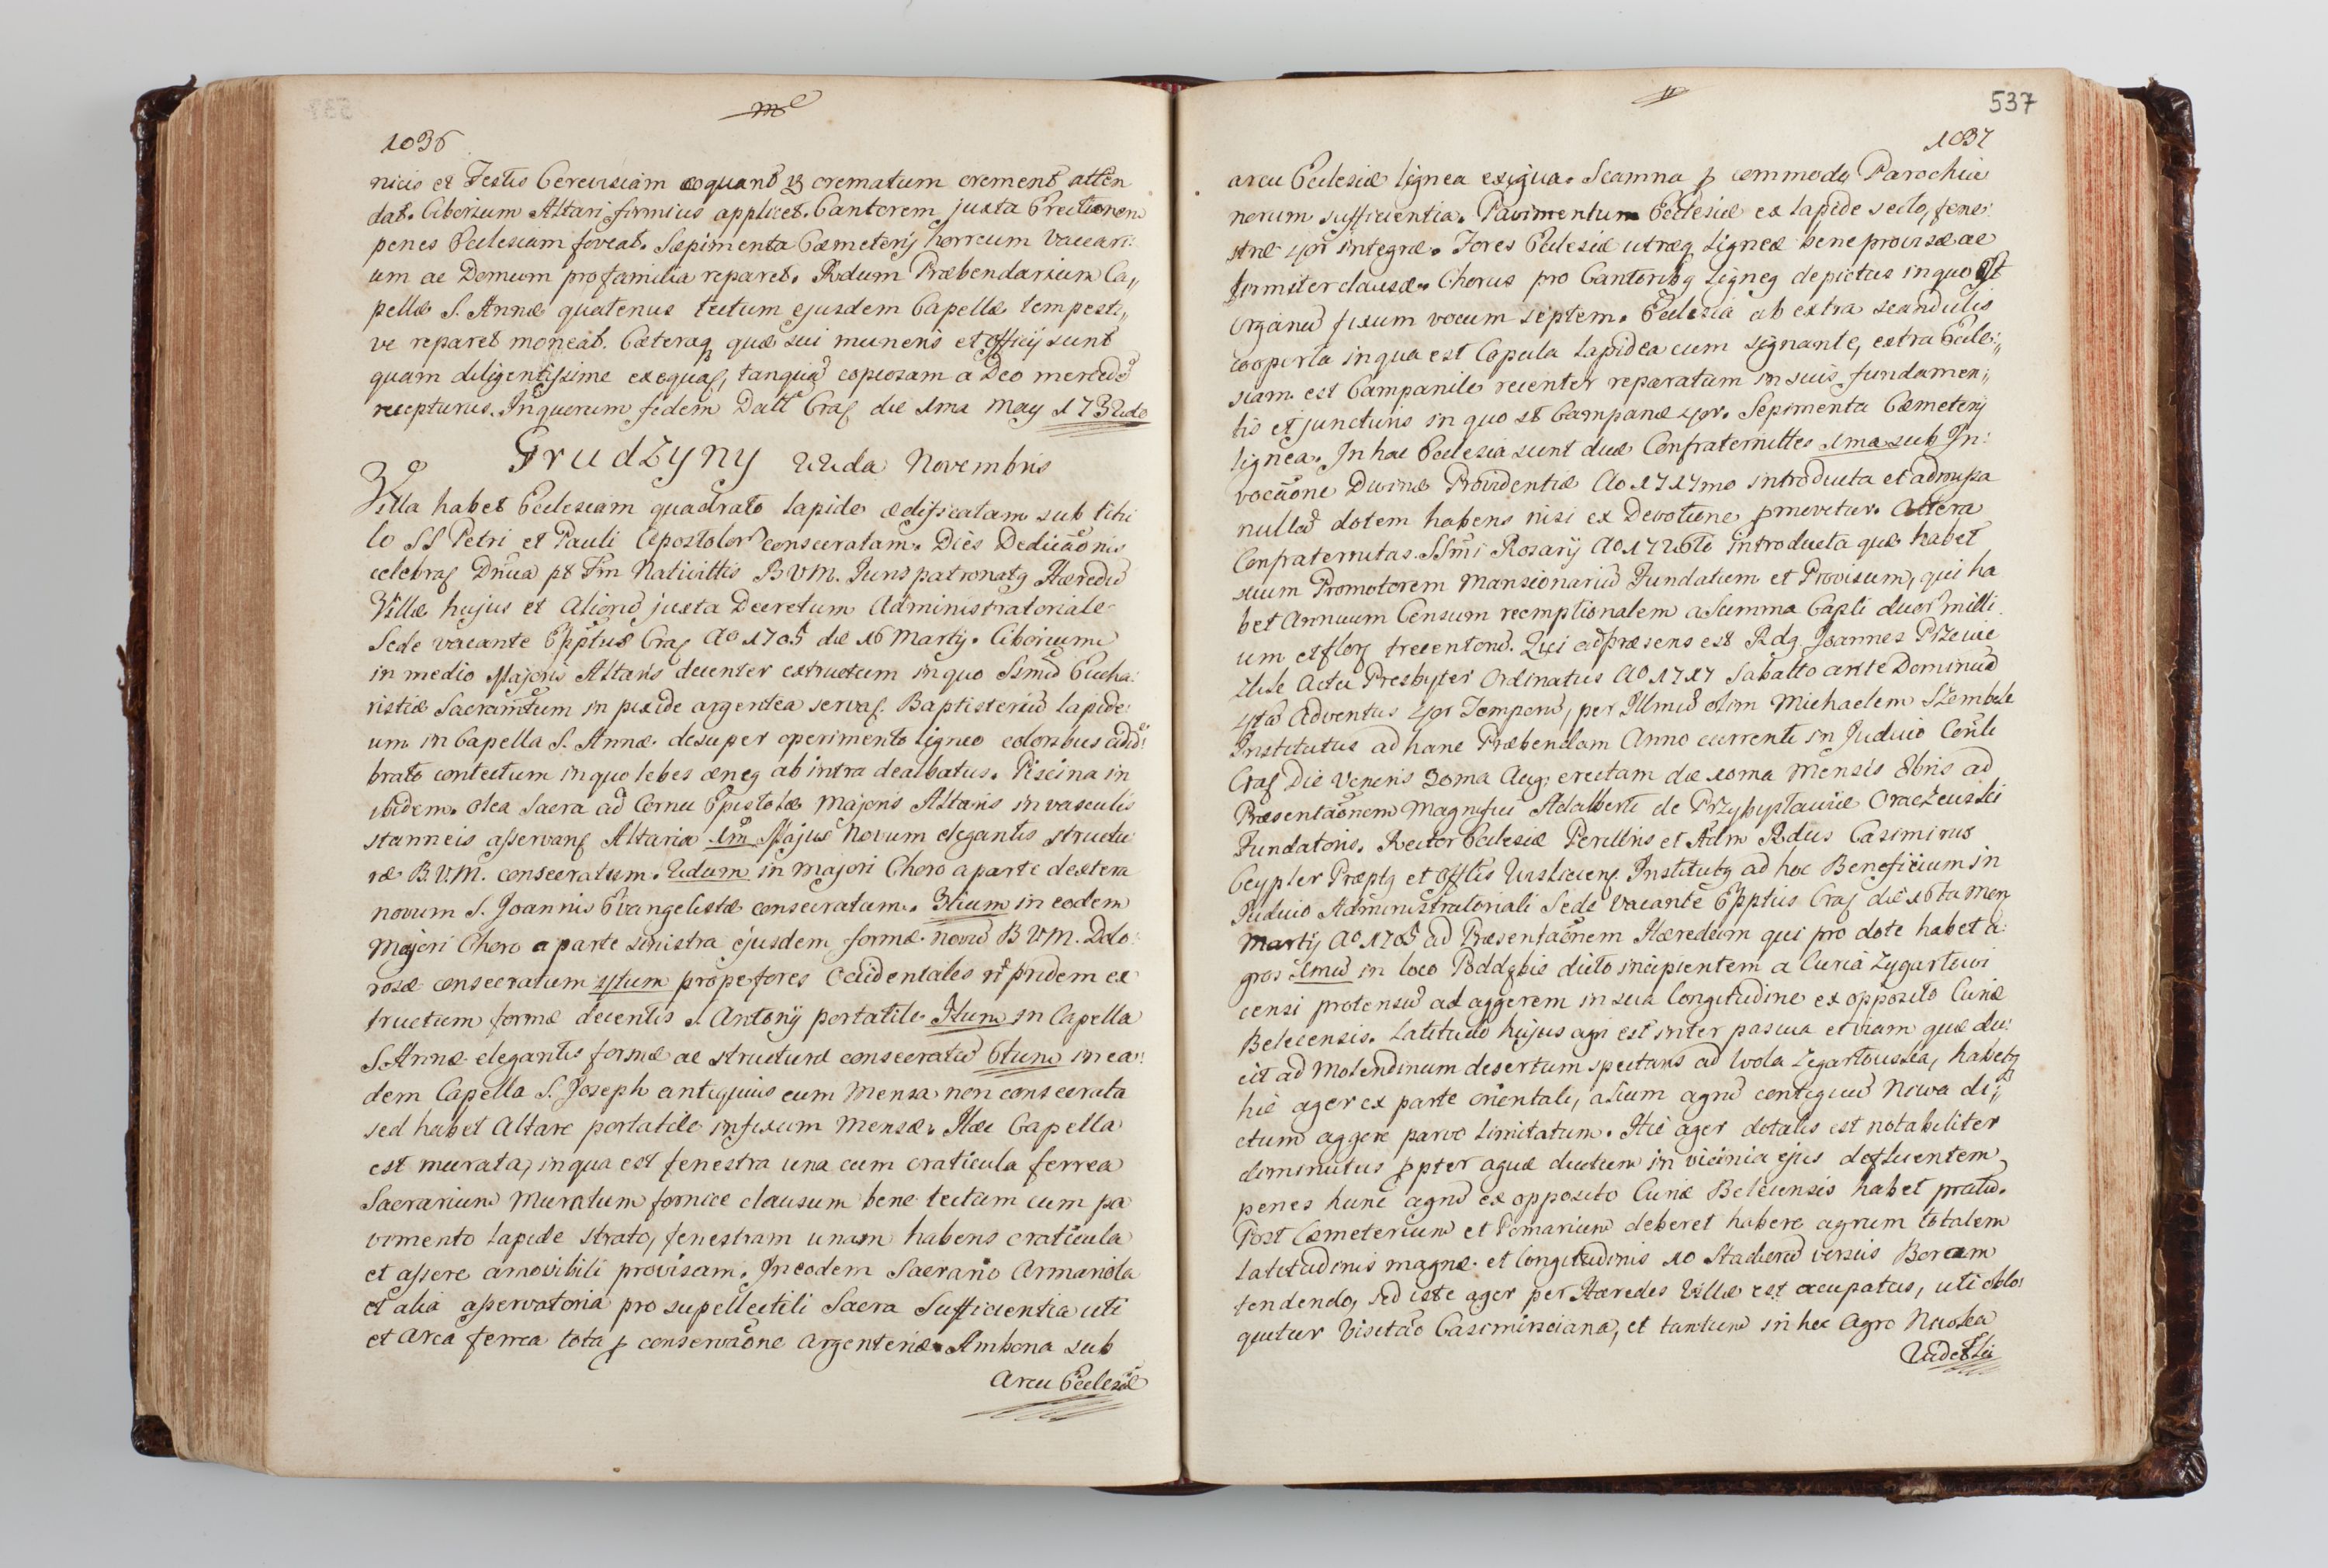 1036
nicis et Festis Cerevisiam coquant & crematum crement atten
dat. Ciborium Altari firmius applicet. Cantorem juxta Erectionem
penes Ecclesiam foveat. Sæpimenta Cæmeterij horreum Vaccari:
um ac Domum pro familia reparet. Rdum Præbendarium Ca„
pellæ S. Annæ quatenus tectum ejusdem Capellæ tempesti„
ve reparet moneat. Cæteraq quæ sui muneris et officij sunt
quam diligentissime exequat, tanquã copiosam a Deo mercedẽ
recepturus. In quorum fidem Datt Crac die 1ma May 1732do
Grudzyny 22da Novembris
Villa habet Ecclesiam quadrato lapide ædificatam sub titu
lo SS Petri et Pauli Apostolor consecratam. Dies Dedicãonis
celebrat Dnica pt Fm Nativittis BVM. Juris patronatq Hæredũ
Villæ hujus et Aliorũ juxta Decretum Administratoriale
Sede vacante Epptus Crac Ao 1705 die 16 Martij. Ciborium
in medio Majoris Altaris decenter extructum in quo Ssmũ Eucha:
ristiæ Sacramtum in pixide argentea servat. Baptisteriũ lapide:
um in Capella S. Annæ desuper operimento ligneo coloribus adũ:
brato contectum in quo lebes æneq ab intra dealbatus. Piscina in
ibidem. Olea Sacra ad Cornu Epistolæ Majoris Altaris in vasculis
stanneis asservant Altaria 1m Majus Novum elegantis structu
ræ B.V.M. consecratum. 2dum in majori Choro a parte dextera
novum S. Joannis Evangelistæ consecratum. 3tium in eodem
Majori Choro a parte sinistra ejusdem formæ novũ BVM. Dolo:
rosæ consecratum 4tum prope fores Occidentales nõ pridem ex
tructum formæ decentis S. Antonij portatile 5tum in Capella
S. Annæ elegantis formæ ac structuræ consecratũ 6tum in ea:
dem Capella S. Joseph antiquius cum Mensa non consecrata
sed habet Altare portatile infixum Mensæ. Hæc Capella
est murata, in qua est fenestra una cum craticula ferrea
Sacrarium Muratum fornice clausum bene tectum cum pa
vimento lapide strato, fenestram unam habens craticula
et assere amovibili provisam. In eodem Sacrario Armariola
et alia asservatoria pro supellectili Sacra Sufficientia uti
et Arca ferrea tota p conservãone argenteriæ. Ambona sub
Arcu Ecclesiæ
537
1037
arcu Ecclesiæ lignea exigua. Scamna p commodo Parochia
norum sufficientia. Pavimentum Ecclesiæ ex lapide secto, fene:
stræ 4or integræ. Fores Ecclesiæ utræq ligneæ bene provisæ ac
firmiter clausæ. Chorus pro Cantoribq ligneq depictus in quo est
Organũ fixum vocum septem. Ecclesia ab extra scandulis
cooperta in qua est Copula lapidea cum signante, extra Eccle:„
siam est Campanile recenter reparatum in suis fundamen:„
tis et juncturis in quo st Campanæ 4or. Sepimenta Cæmeterij
lignea. In hac Ecclesia sunt duæ Confraternittes 1ma sub In:
vocãone Divinæ Providentiæ Ao 1717mo introducta et admissa
nullã dotem habens nisi ex Devotione pmovetur. Altera
Confraternitas Ssmi Rosarij Ao 1726to introducta quæ habet
suum Promotorem Mansionariũ Fundatum et Provisum, qui ha
bet Annuum Censum reemptionalem a Summa Capli duor milli
um et flor trecentorũ. Qui ad præsens est Rdq Joannes Przewie
zlik Actu Presbyter Ordinatus Ao 1717 Sabatto ante Dominicã
4tã Adventus 4or Temporũ, per Illmũ olim Michaelem Szembek
Institutus ad hanc Præbendam Anno currenti in Judicio Conli
Crac Die Veneris 30ma Aug: erectam die 10ma Mensis 8bris ad
Præsentãonem Magnifici Adalberti de Przybysławice Oraczewski
Fundatoris. Rector Ecclesiæ Perillris et Adm Rdus Casimirus
Ceypler Præptq et Offlis Uisliciens. Institutq ad hoc Beneficium in
Judicio Administratoriali Sede Vacante Epptus Crac die 16ta Men
Martij Ao 1705 ad Præsentãonem Hæredum qui pro dote habet a:
gros 1mũ in loco Poddębie dicto incipientem a Curia Zygartowi
censi protensũ ad aggerem in sua longitudine ex opposito Curiæ
Belecensis. Latitudo hujus agri est inter pascua et viam quæ du:
cit ad Molendinum desertum spectans ad Wola Zegartouska, habetq
hic ager ex parte orientali, alium agrũ contiguũ Niwa di„
ctum aggere parvo limitatum. Hic ager dotalis est notabiliter
diminutus ppter aquæ ductum in vicinia ejus defluentem
penes hunc agrũ ex opposito Curiæ Belecensis habet pratũ.
Post Cæmeterium et Pomarium deberet habere agrum totalem
latitudinis magnæ et longitudinis 10 Stadiorũ versus Boream
tendendo, sed iste ager per Hæredes Villæ est occupatus, uti eblo:
quitur Visitão Casimirsciana, et tantum in hoc Agro